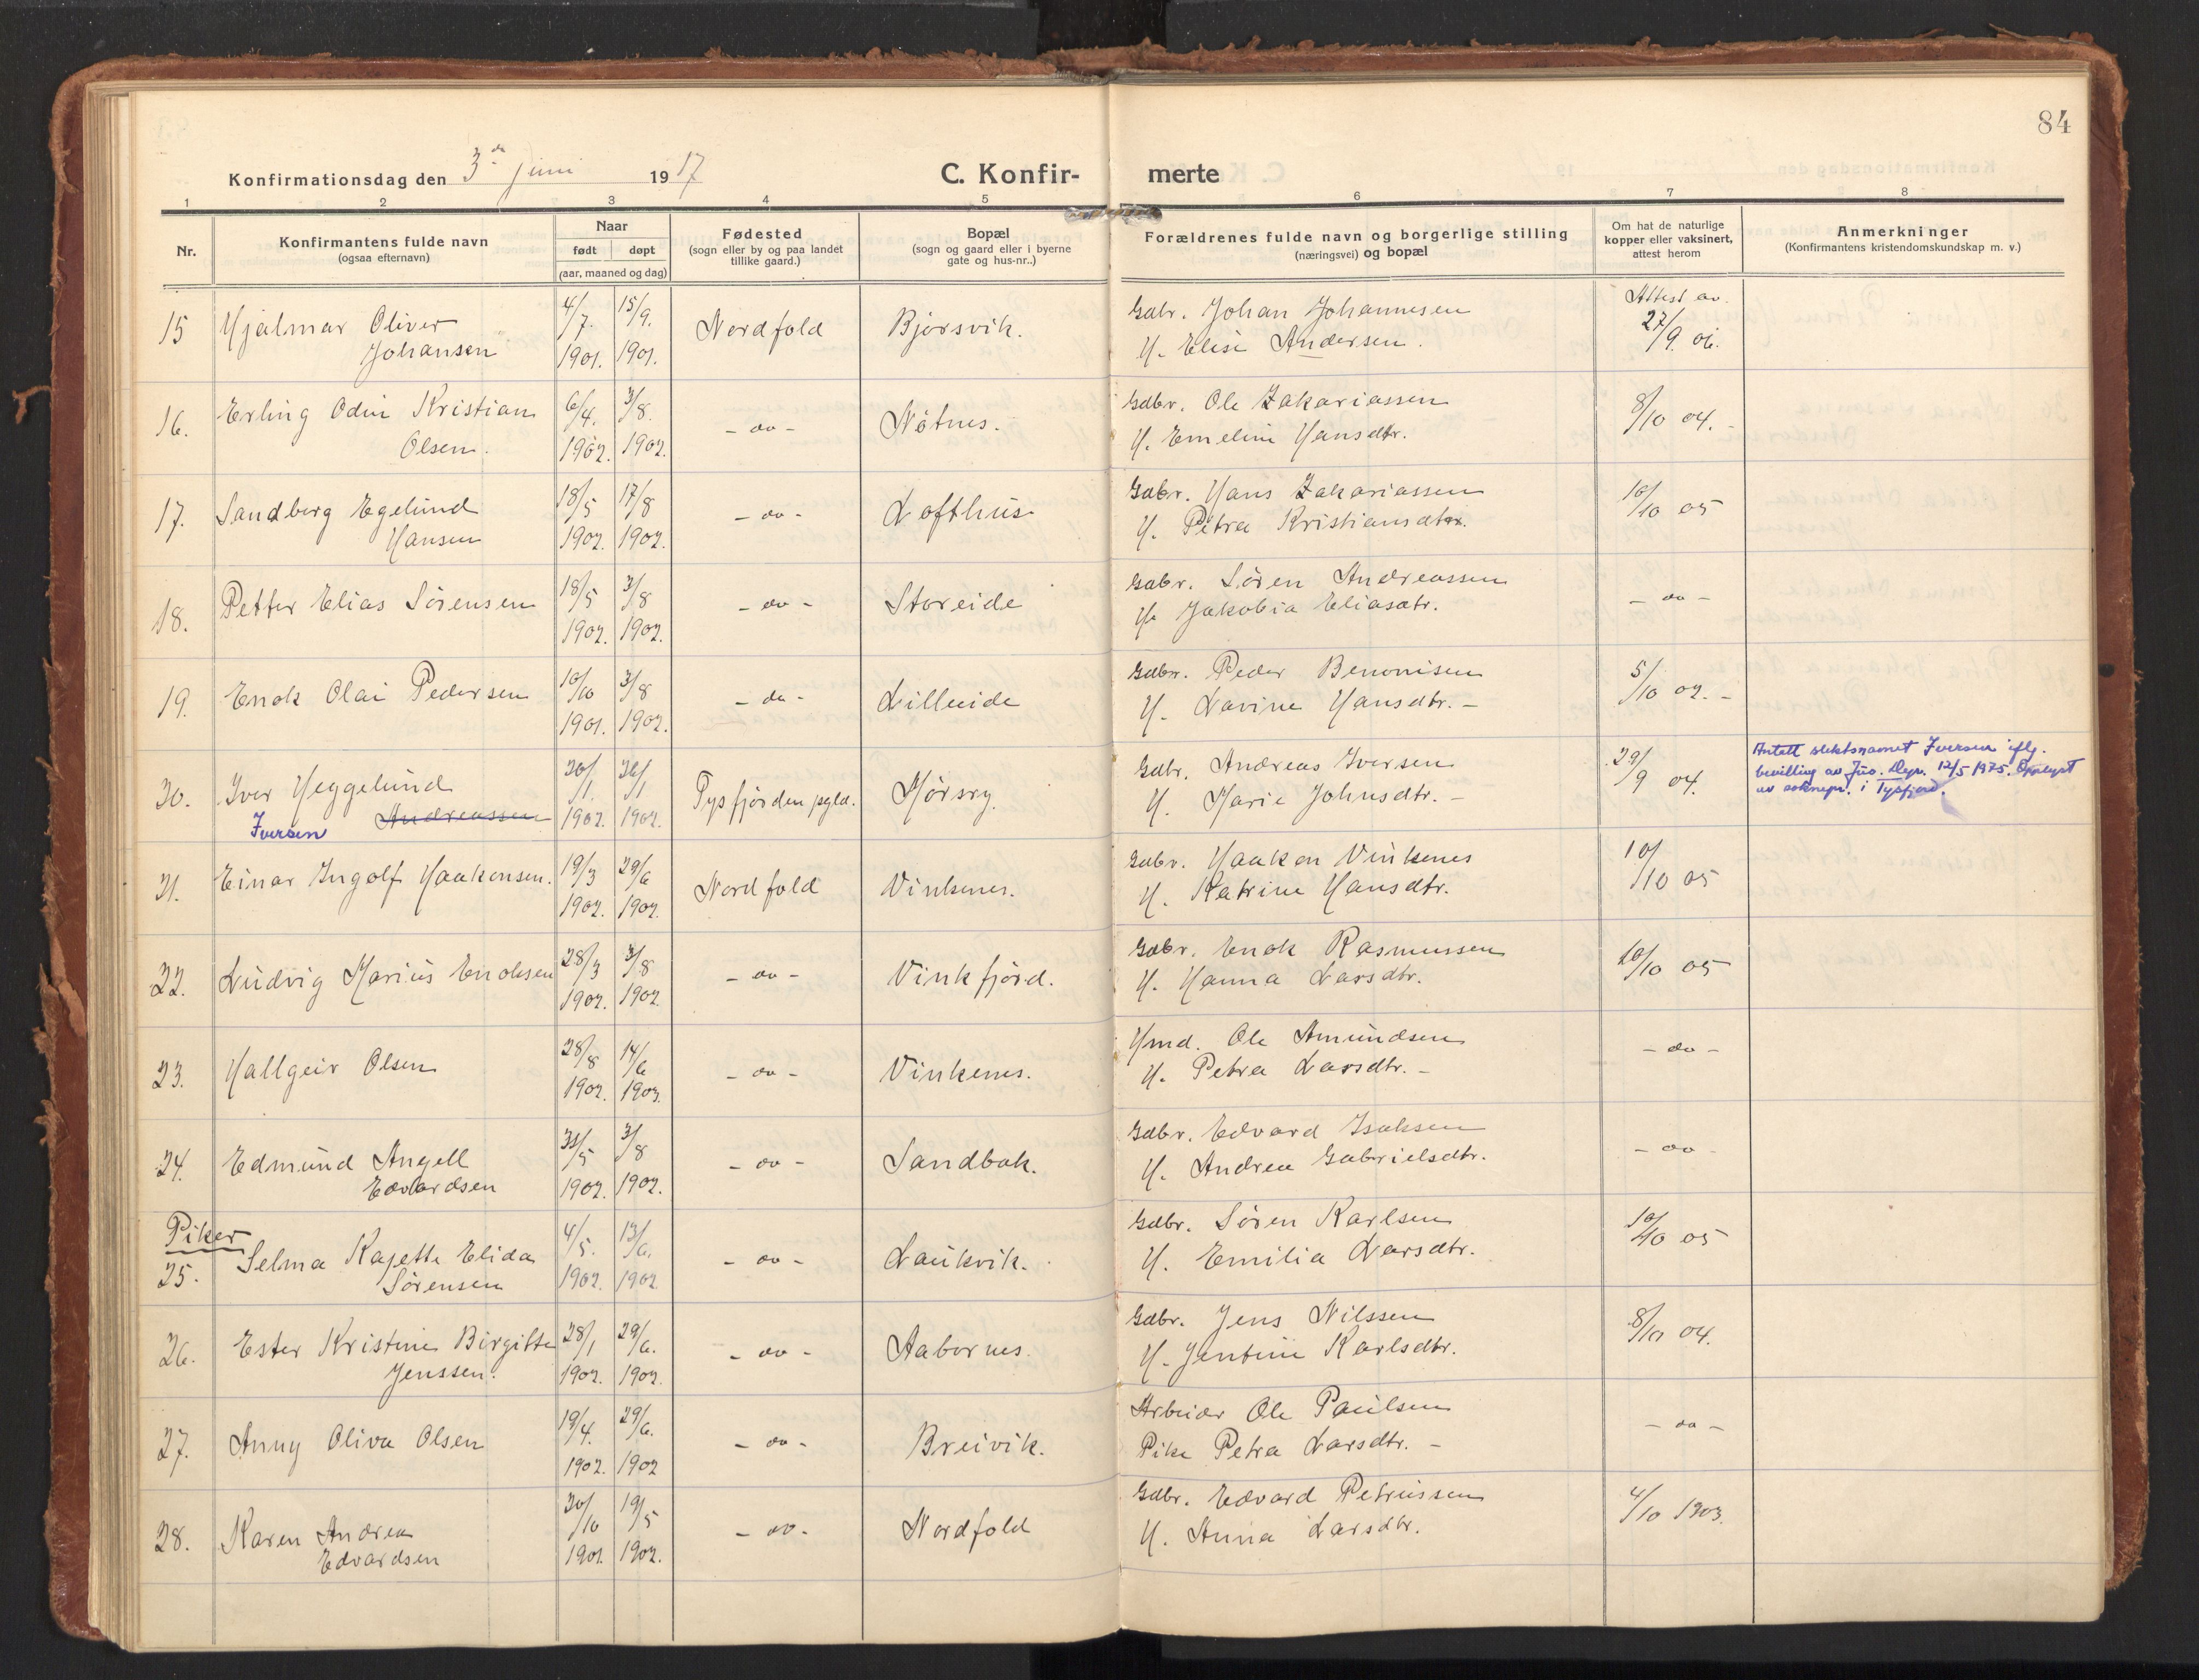 84
Konfirmationsdag den 3de juni 1917
C. Konfir-
merte
1 2 3 4 5 6 7 8
Nr.
Konfirmantens fulde navn
(ogsaa efternavn)
Naar
født døpt
(aar, maaned og dag)
Fødested
(sogn eller by og paa landet
tillike gaard.)
Bopæl
(sogn og gaard eller i byerne
gate og hus-nr..)
Forældrenes fulde navn og borgerlige stilling
(næringsvei) og bopæl
Om hat de naturlige
kopper eller vaksinert,
attest herom
Anmerkninger
(Konfirmantens kristendomskundskap m. v.)
15 Hjalmar Oliver Johansen 4/7. 1901. 15/9. 1901. Nordfold Bjørsvik.
Gdbr. Johan Johannesen
H. Elise Andersen.
Attest av. 27/9. 06.
16. Erling Odin Kristian Olsen. 6/4. 1902. 3/8. 1902. - do - Nøtnes.
Gdbr. Ole Zakariassen
H. Emeline Hansdtr.
8/10 04. -
17. Sandberg Egelund Hansen 18/5 1902. 17/8 1902. - do - Lofthus
Gdbr. Hans Zakariassen
H. Petra Kristiansdtr.
10/10 05
18. Petter Elias Sørensen 18/5 1902. 3/8 1902. - do - Storeide
Gdbr. Søren Andreassen
H. Jakobia Eliasdtr.
- do -
19. Enok Olai Pedersen 10/10 1901. 3/8 1902. - do - Lilleeide
Gdbr. Peder Benonisen
H. Lavine Hansdtr. -
5/10 02. -
20. Iver Heggelund Andreassen Iversen 20/1. 1902. 26/1 1902. Tysfjorden pgld. Mørsry.
Gdbr. Andreas Iversen
H. Marie Johnsdtr. -
29/9 04.
Antatt slektsnavnet Iversen iflg.
bevilling av Jus. Dep. 12/5 1925. Opplyst
av soknepr. i Tysfjord.
21. Einar Ingolf Haakensen. 19/3 1902. 29/6 1902. Nordfold Vinkenes.
Gdbr. Haaken Vinkenes
H. Katrine Hansdtr.
10/10 05
22. Ludvig Marius Enoksen 28/3 1902. 3/8 1902 - do - Vinkfjord.
Gdbr. Enok Rasmussen
H. Hanna Larsdtr.
10/10 05
23. Hallgeir Olsen 28/8 1902. 14/6 1903. - do - Vinkenes.
Hmd. Ole Amundsen
H. Petra Larsdtr. -
- do -
24. Edmund Angell Edvardsen 31/5 1902. 3/8 1902. - do - Sandbak.
Gdbr. Edvard Isaksen
H. Andrea Gabrielsdtr.
- do -
Piker
25. Selma Kasette Elida Sørensen 4/5. 1902. 13/6. 1902 - do - Laukvik.
Gdbr. Søren Karlsen
H. Emilia Larsdtr.
10/10 05
26. Ester Kristine Birgitte Jenssen. 28/1 1902. 29/6. 1902. - do - Aabornes.
Gdbr. Jens Nilssen
H. Jentine Karlsdtr.
8/10 04.
27. Anny Oliva Olsen 19/4. 1902. 29/6. 1902 - do - Breivik.
Arbeider Ole Paulsen
Pike Petra Larsdtr. -
- do -
28. Karen Andrea Edvardsen 20/10 1901. 19/5 1902. - do - Nordfold
Gdbr. Edvard Petrussen
H. Anna Larsdtr.
4/10 1903.